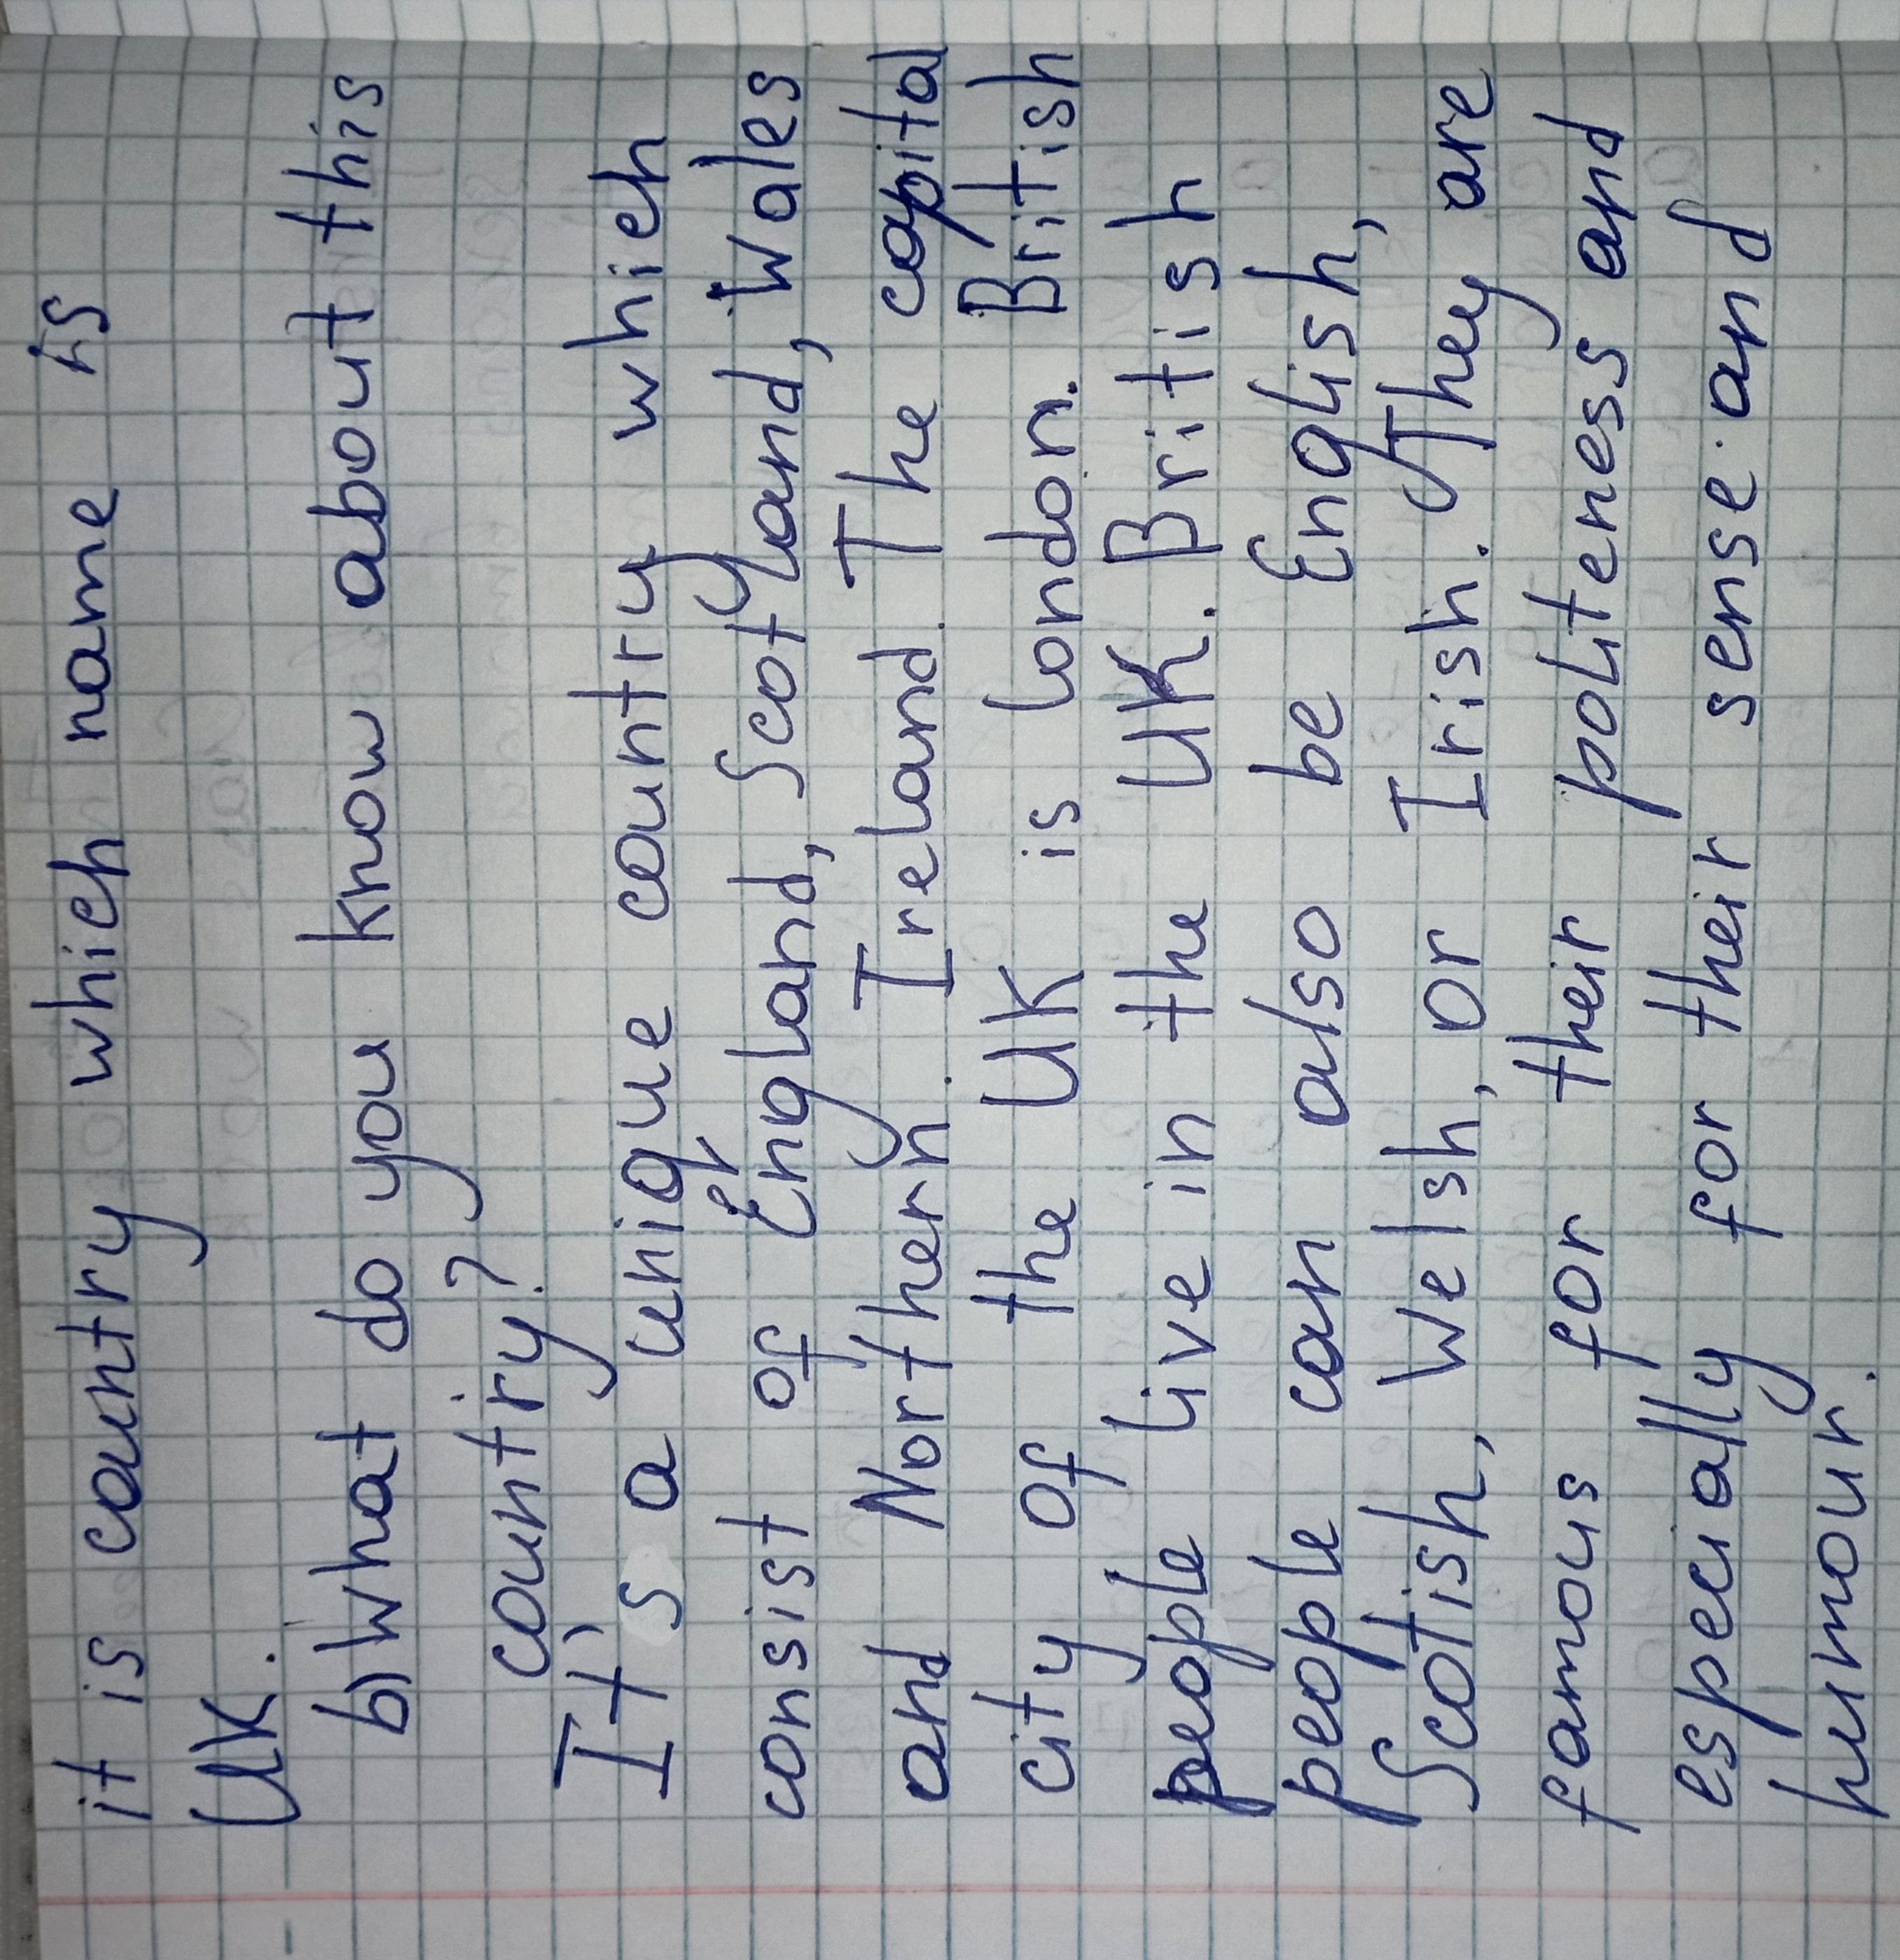 it is country which name is
UK.
b) What do you know about this
country?
It's a unique country which
consist of England, Scotland, Wales
and Northern Ireland. The capital
city of the UK is London. British
people live in the UK. British
people can also be English,
Scotish, Welsh, or Irish. They are
famous for their politeness and
especially for their sense and
humour.